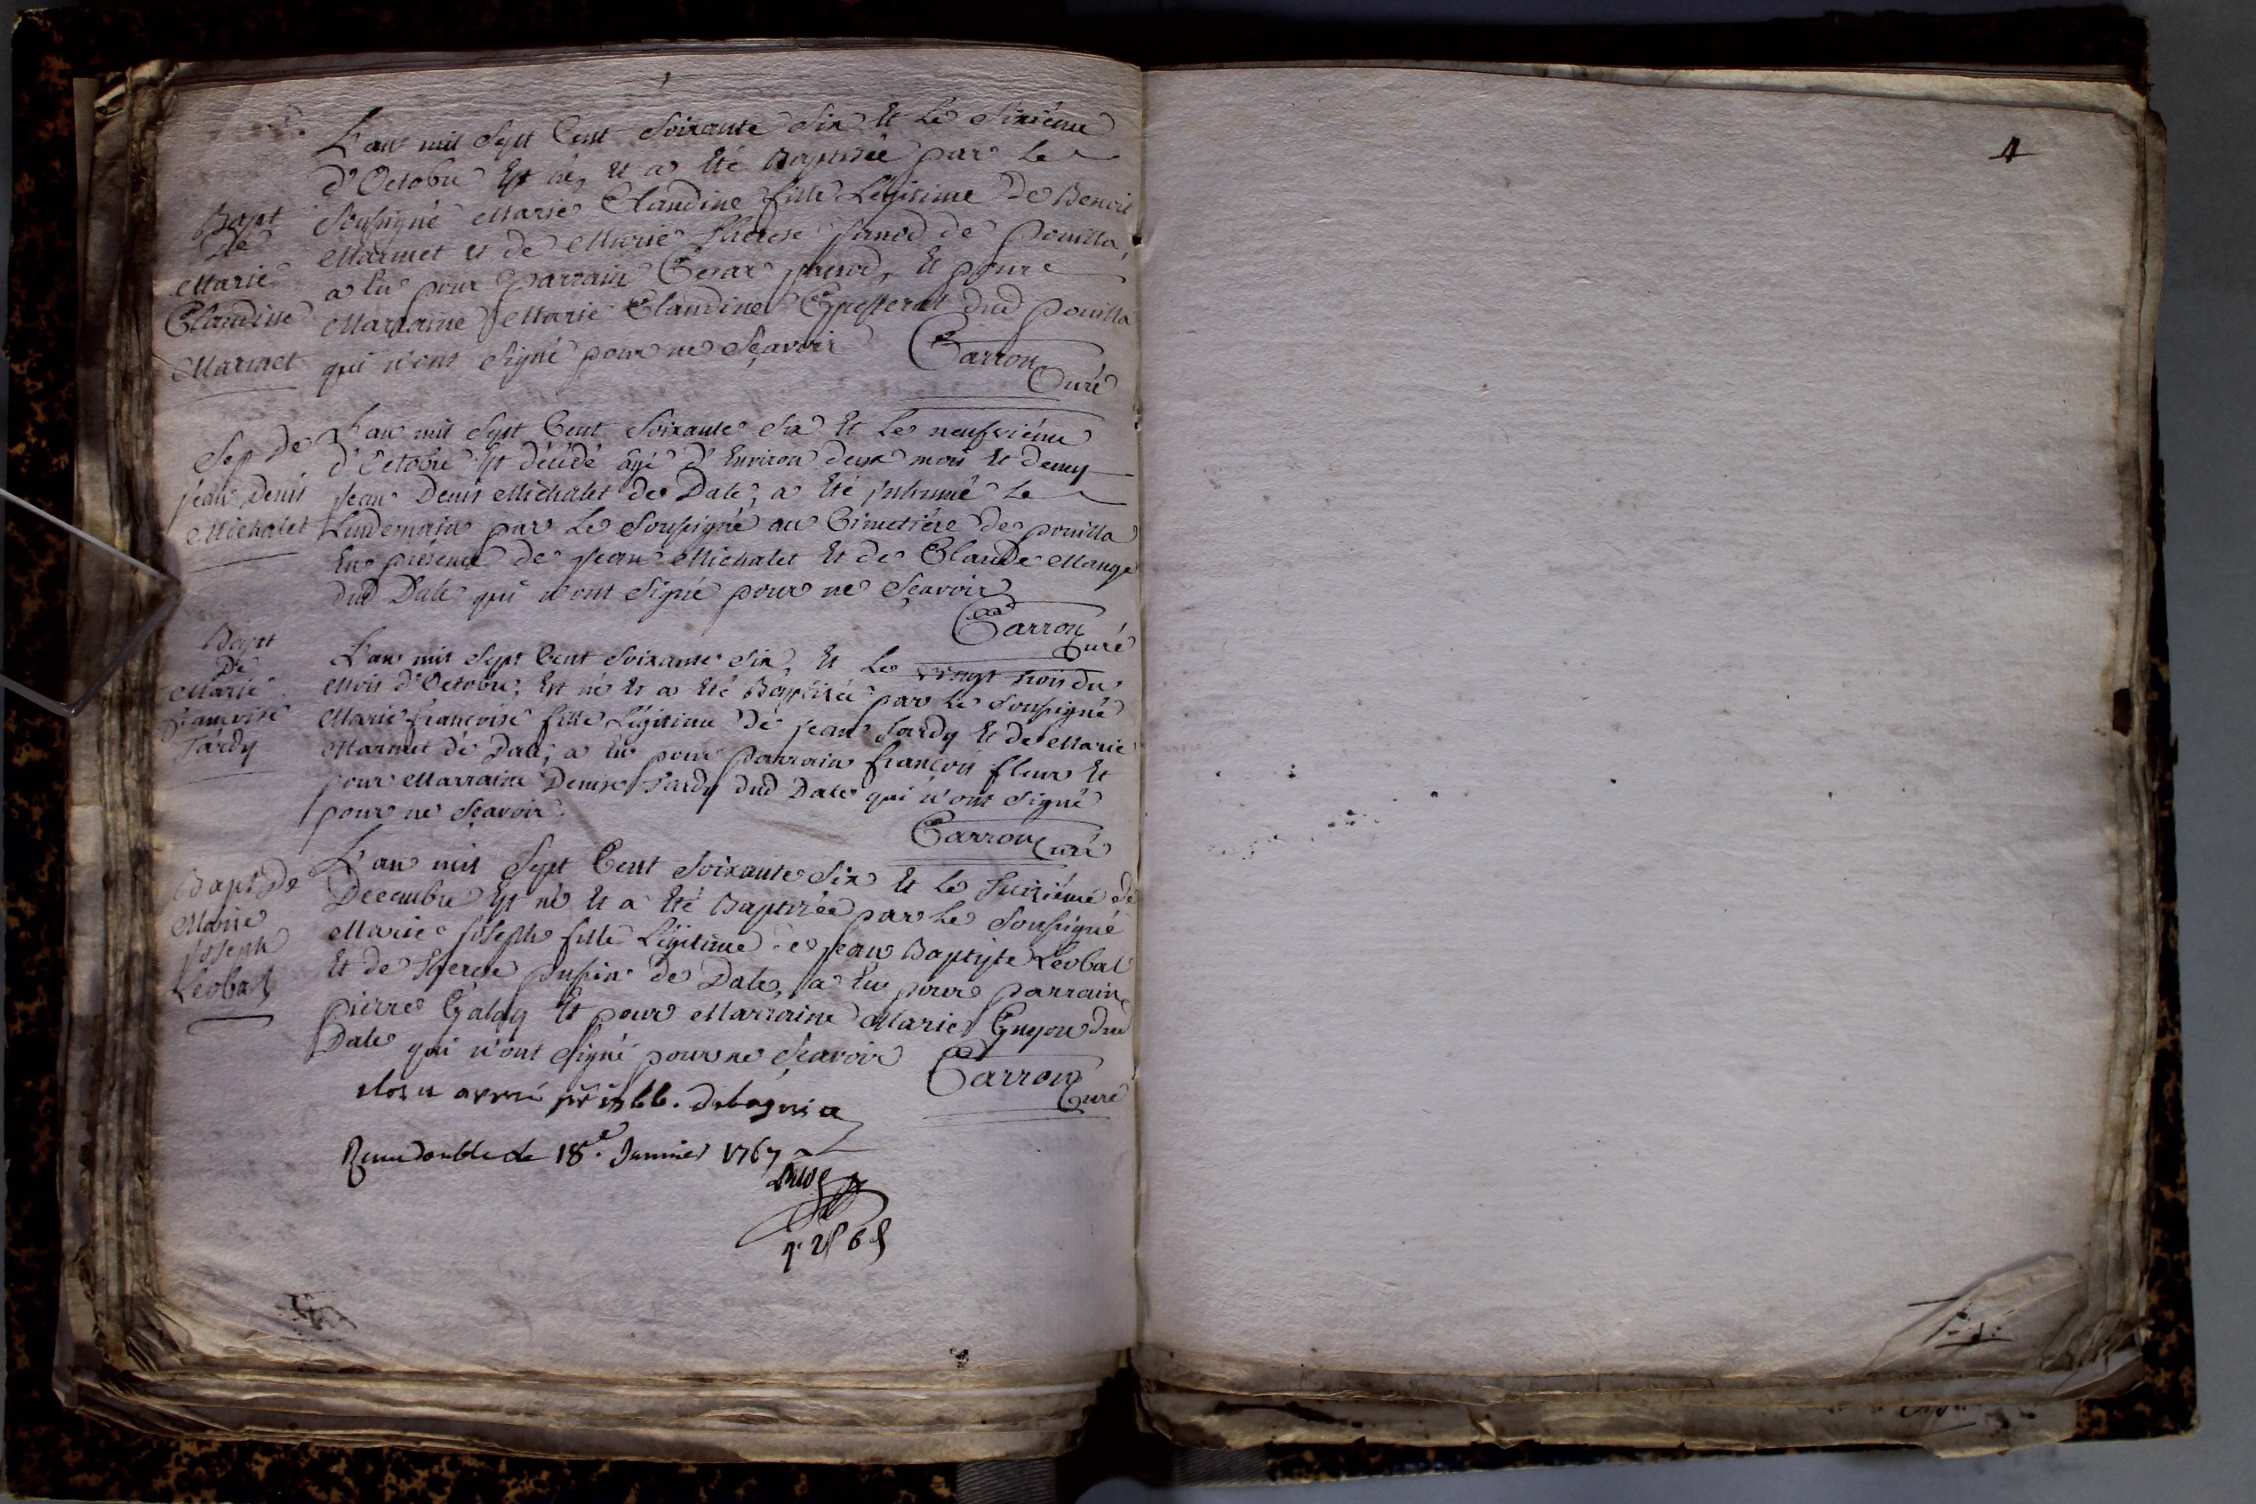 L'an mil Sept Cent Soixante Six Et Le Sixiéme
d'Octobre Est né, Et a Eté Baptisée par Le
Bapt
De
Marie
Claudine
Marmet
Soussigné Marie Claudine fille Légitime De Benoit
Marmet et de Marie Thérese de Pouilla
a Eu pour Parrain Cesar Et pour
Marraine Marie Claudine dud Pouilla
qui n'ont Signé pour ne Sçavoir
Carron
Curé
Sep De
Jean Denis
Michalet
L'an mil Sept Cent Soixante Six Et Le neufviéme
d'Octobre Est décédé âgé d'Environ deux mois Et demy
Jean Denis Michalet De Dale, a Eté Inhumé Le
Lendemain par Le Soussigné au Cimetiére De Pouilla
En présence de Jean Michalet Et de Claude Mange
dud Dale qui n'ont Signé pour ne Sçavoir
Carron
Curé
Bapt
De
Marie
Françoise
Tardy
L'an mil Sept Cent Soixante Six, Et Le vingt trois du
Mois d'Octobre, Est né Et a Eté Baptisée par Le Soussigné
Marie françoise fille Légitime de Jean Tardy Et de Marie
Marmet de Dale, a Eu pour Parrain françois fleur Et
pour Marraine Denise Tardy dud Dale qui n'ont Signé
pour ne Sçavoir.
Carron Curé
Bapt De
Marie
Joseph
Léobal
L'an mil Sept Cent Soixante Six Et Le huitiéme de
Decembre Est né Et a Eté Baptisée par Le Soussigné
Marie Joseph fille Légitime de Jean Baptiste Léobal
Et de Therese De Dale, a Eu pour parrain
pierre Et pour Marraine Marie Guyon dud
Dale qui n'ont Signé pour ne Sçavoir
Carron
Curé
double le 18e. Janvier 1767
4